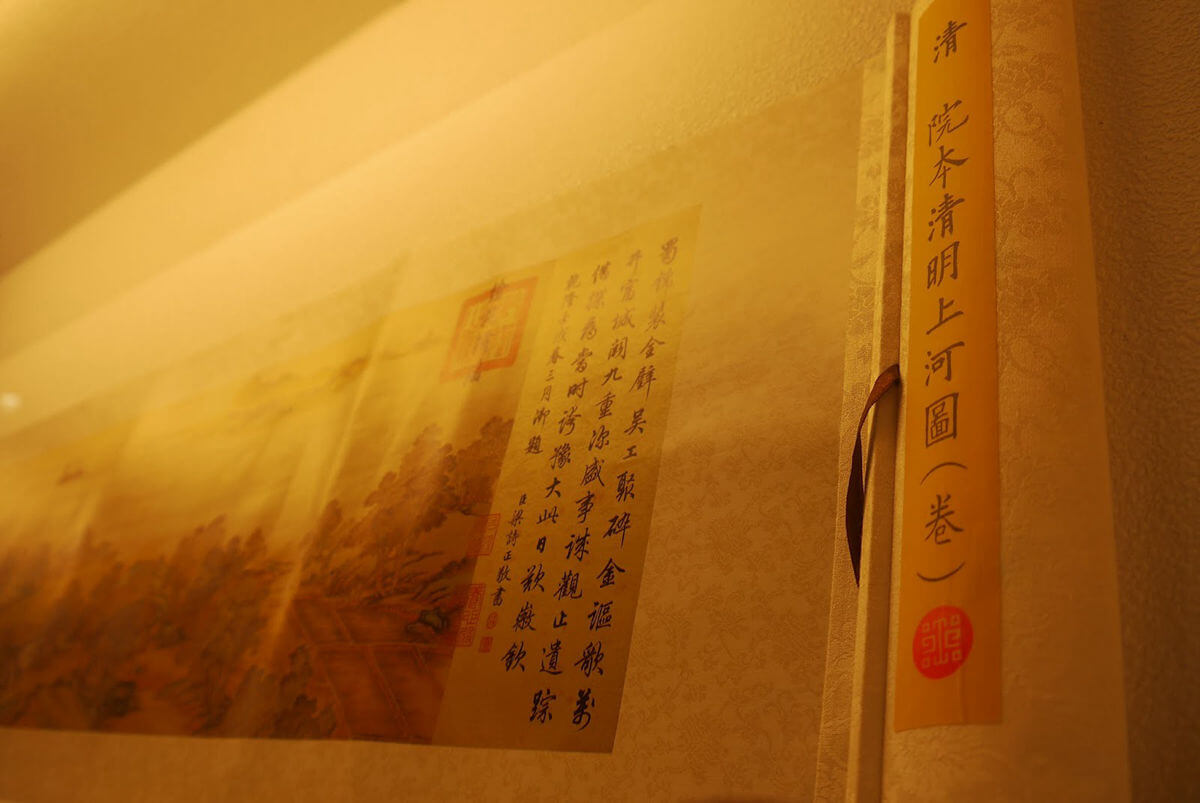 清 院本清明上河圖(卷)
蜀錦裝金壁吳工聚碎金謳歌萬
井富城闕九重深盛事誠觀止遺踪
借探尋當時誇豫大此日歎徽欽
乾隆壬戌春三月御題
臣梁詩正敬書